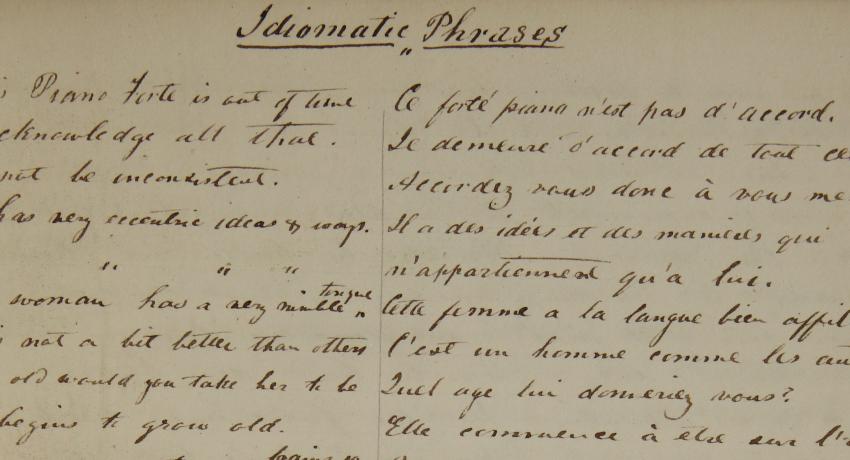 Idiomatic Phrases
Piano Forte is out of tune
cknowledge all that.
not be inconsistent.
has very eccentric ideas & ways.
" " "
woman has a very nimble tongue "
not a bit better than others
old would you take her to be
begins to grow old.
Ce forté piano n'est pas d'accord.
Je demeure d'accord de tout ce
Accordez vous donc à vous me
Il a des idées et des manieres qui
n'appartiennent qu'a lui.
Cette femme a la langue bien affil
C'est un homme comme les au
Quel age lui donneriez vous?
Elle commence à etre sur l'